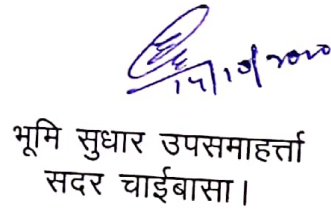 14/10/2020
भूमि सुधार उपसमाहर्त्ता
सदर चाईबासा।